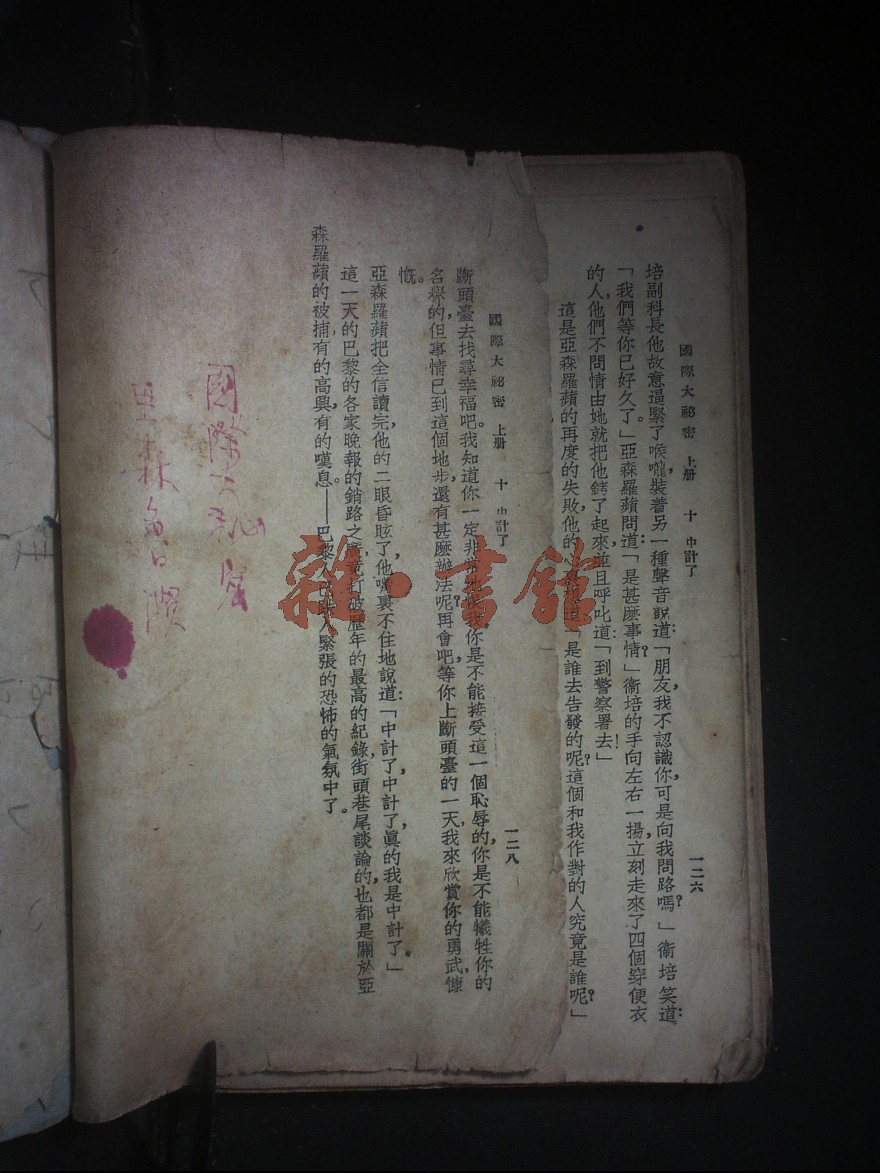 國際大祕密 上册 十 中計了 一二六
培副科長他故意逼緊了喉嚨,裝着另一種聲音說道:「朋友,我不認識你,可是向我問路嗎?」衞培笑道:
「我們等你已好久了。」亞森羅蘋問道:「是甚麽事情?」衞培的手向左右一揚,立刻走來了四個穿便衣
的人,他們不問情由,她就把他銬了起來,並且呼叱道:「到警察署去!」
這是亞森羅蘋的再度的失敗,他的心是誰去告發的呢?這個和我作對的人究竟是誰呢?」
國際大祕密 上册 十 中計了 一二八
斷頭臺去找尋幸福吧。我知道你一定非常你是不能接受這一個恥辱的,你是不能犧牲你的
名譽的,但事情已到這個地步,還有甚麽辦法呢?再會吧,等你上斷頭臺的一天,我來欣賞你的勇武,慷
慨。
亞森羅蘋把全信讀完,他的二眼昏眩了,他嘴裏不住地說道:「中計了,中計了,眞的我是中計了。」
這一天的巴黎的各家晚報的銷路之廣,竟打破歷年的最高的紀錄,街頭巷尾談論的,也都是關於亞
森羅蘋的被捕,有的高興,有的嘆息。——巴黎入緊張的恐怖的氣氛中了。
國際大秘密
亞森魯濱
雜·書館